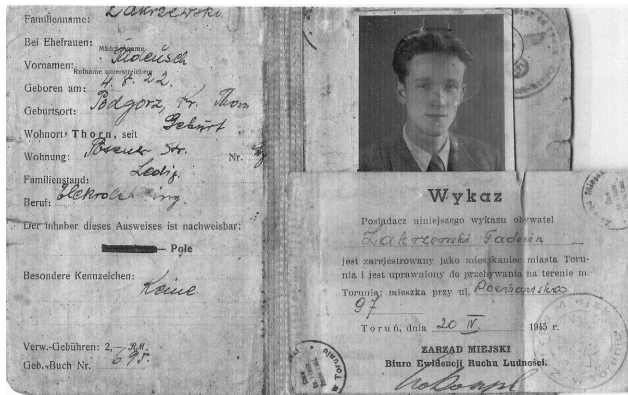 Familienname: Zakrzewski
Bei Ehefrauen:
Mädchenname
Vornamen: Tadeusch
Rufname unterstreichen
Geboren am: 4. 8. 22.
Geburtsort: Podgorz, Kr. Thorn
Wohnort: Thorn, seit Geburt
Wohnung: Posener Str. Nr.
Familienstand: Ledig
Beruf:
Der Inhaber dieses Ausweises ist nachweisbar:
Pole
Besondere Kennzeichen:
Keine
Verw.-Gebühren: 2,— RM.
Geb.-Buch Nr. 695.
Wykaz
Posiadacz niniejszego wykazu obywatel
Zakrzewski Tadeusz
jest zarejestrowany jako mieszkaniec miasta Toru-
nia i jest uprawniony do przebywania na terenie m.
Torunia; mieszka przy ul. Poznańska
97
Toruń, dnia 20 IV. 1945 r.
ZARZĄD MIEJSKI
Biuro Ewidencji Ruchu Ludności.